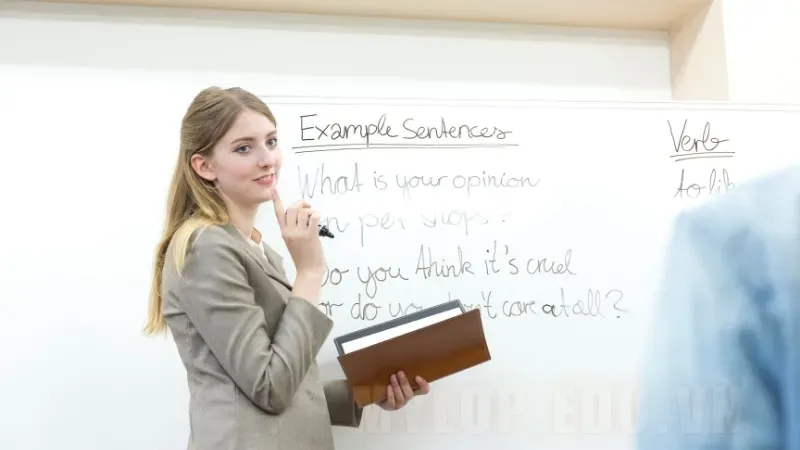 Example Sentences
What is your opinion
on pet shops?
Do you think it's cruel
or do you don't care at all?
Verb
to lik
MYLOP.EDU.VN